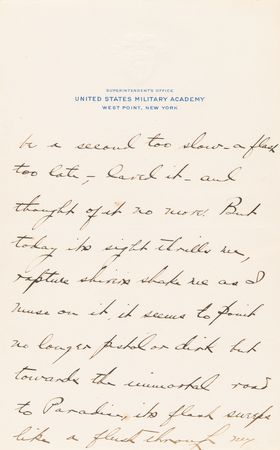 SUPERINTENDENT'S OFFICE
UNITED STATES MILITARY ACADEMY
WEST POINT, NEW YORK
be a second too slow - a flash
too late -, it - and
thought of it no more. But
today its sight thrills me,
rapture shivers shake me as I
muse on it, it seems to point
no longer pistol or dirk but
towards the immortal road
to Paradise, its flash sweeps
like a flush through my